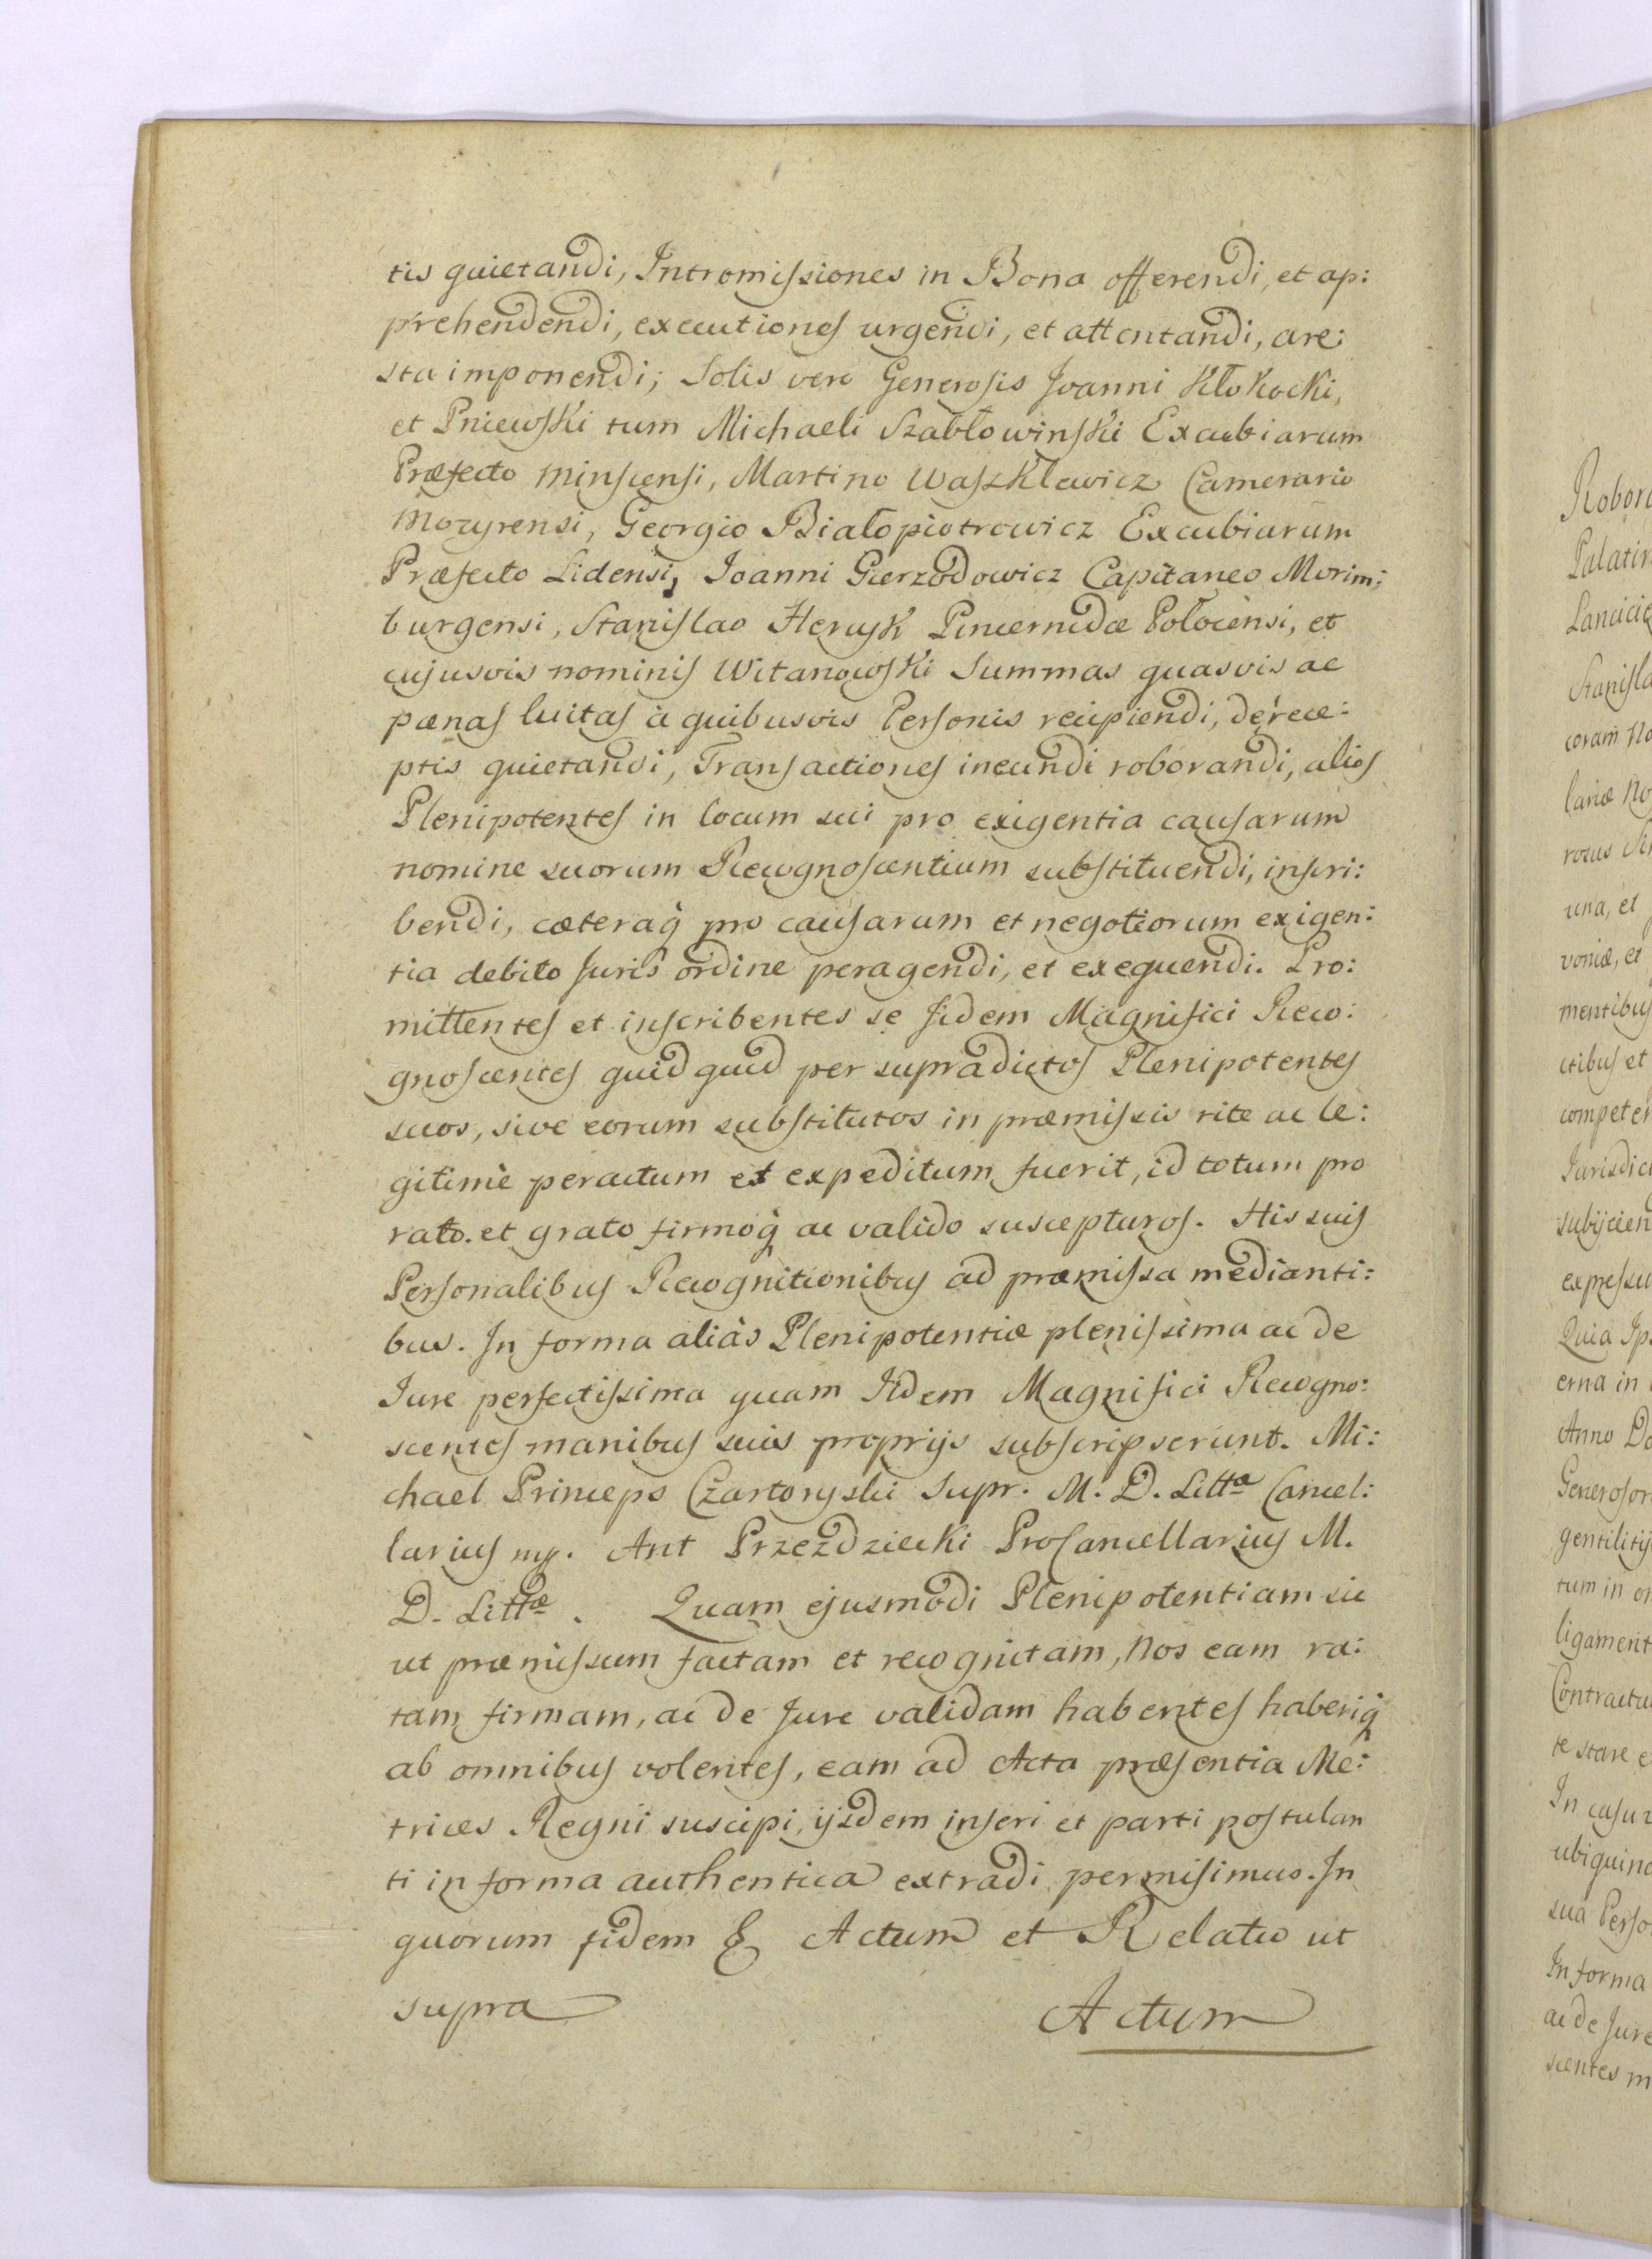 tis quietandi, Intromissiones in Bona offerendi, et ap:
prehendendi, executiones urgendi, et attentandi, are:
sta imponendi; Solis vero Generosis Joanni Kłokocki,
et Pniewski tum Michaeli Szabłowinski Excubiarum
Præfecto Minscensi, Martino Waszklewicz Camerario
Mozyrensi, Georgio Białopiotrowicz Excubiarum
Præfecto Lidensi, Joanni Gierzodowicz Capitaneo Morim:
burgensi, Stanislao Heruyk Pincernidæ Połocensi, et
cujusvis nominis Witanowski Summas quasvis ac
pænas luitas à quibusvis Personis recipiendi, de rece:
ptis quietandi, Transactiones ineundi roborandi, alios
Plenipotentes in locum sui pro exigentia causarum
nomine suorum Recognoscentium substituendi, inscri:
bendi, cæteraq̃ pro causarum et negotiorum exigen:
tia debito Juris ordine peragendi, et exequendi. Pro:
mittentes et inscribentes se Jidem Magnifici Reco:
gnoscentes quidquid per supradictos Plenipotentes
suos, sive eorum substitutos in præmissis rite ac le:
gitimè peractum et expeditum fuerit, id totum pro
rato. et grato firmoq̃ ac valido suscepturos. His suis
Personalibus Recognitionibus ad præmissa medianti:
bus. In forma aliàs Plenipotentiæ plenissima ac de
Jure perfectissima quam Jidem Magnifici Recogno:
scentes manibus suis proprijs subscripserunt. Mi:
chael Princeps Czartoryski Supr. M. D. Littæ Cancel:
larius mp. Ant Przezdziecki ProCancellarius M.
D. Littæ. Quam ejusmodi Plenipotentiam sic
ut præmissum factam et recognitam, Nos eam ra:
tam firmam, ac de Jure validam habentes haberiq̃
ab omnibus volentes, eam ad Acta præsentia Me:
trices Regni suscipi, ijsdem inseri et parti postulan
ti in forma authentica extradi permisimus. In
quorum fidem & Actum et Relatio ut
supra
Actum
Robor
Palatin
Lancicie
Stanisla
coram No
lariæ No
rosus
una, et
voniæ, et
mentibus
ctibus et
competen
Jurisdic
subijcien
expressu
Quia Ips
erna in
Anno Do
Generosor
gentilitij
tum in o
ligament
Contractu
te stare e
In casu
ubiquinq
sua Perso
In forma
ac de Jure
scentes m